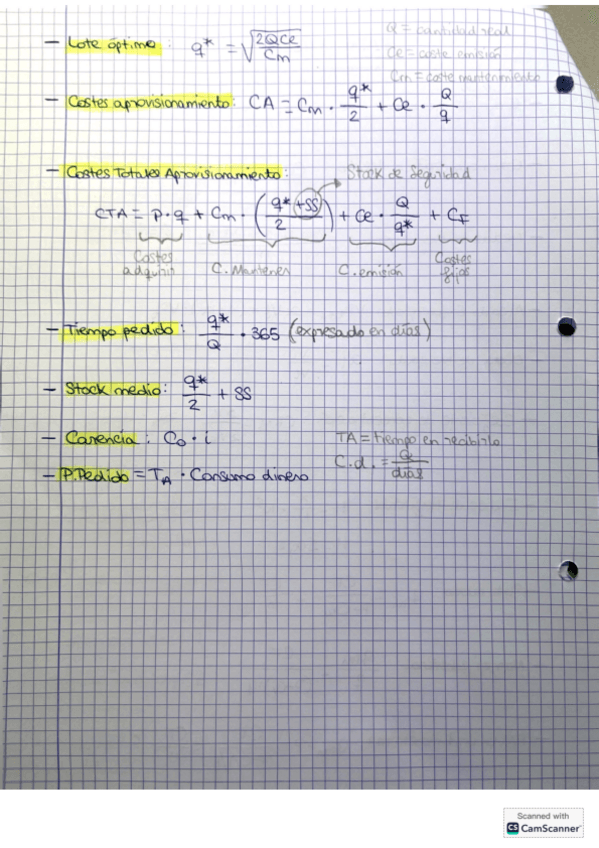 - Lote óptimo: q* = √(2QCe / Cm)
Q = cantidad real
Ce = coste emisión
Cm = coste mantenimiento
- Costes aprovisionamiento: CA = Cm · q*/2 + Ce · Q/q
- Costes Totales Aprovisionamiento:
Stock de Seguridad
CTA = P·q + Cm · (q* + SS / 2) + Ce · Q/q* + CF
Costes adquirir
C. Mantener
C. emisión
Costes fijos
- Tiempo pedido: q*/Q · 365 (expresado en días)
- Stock medio: q*/2 + SS
- Carencia: Co · i
TA = tiempo en recibirlo
C.d. = Q/días
- P.Pedido = TA · Consumo dinero
Scanned with
CS CamScanner